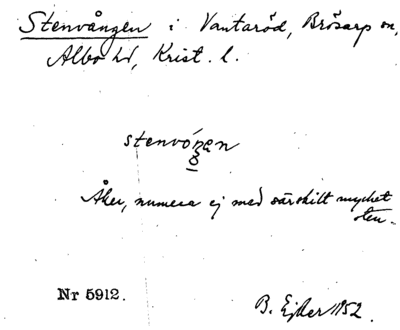 Stenvången i Vantaröd, Brösarp sn,
Albo hd, Krist. l.
stenvóŋen
Åker, numera ej med särskilt mycket
sten.
Nr 5912.
B. Ejder 1952.